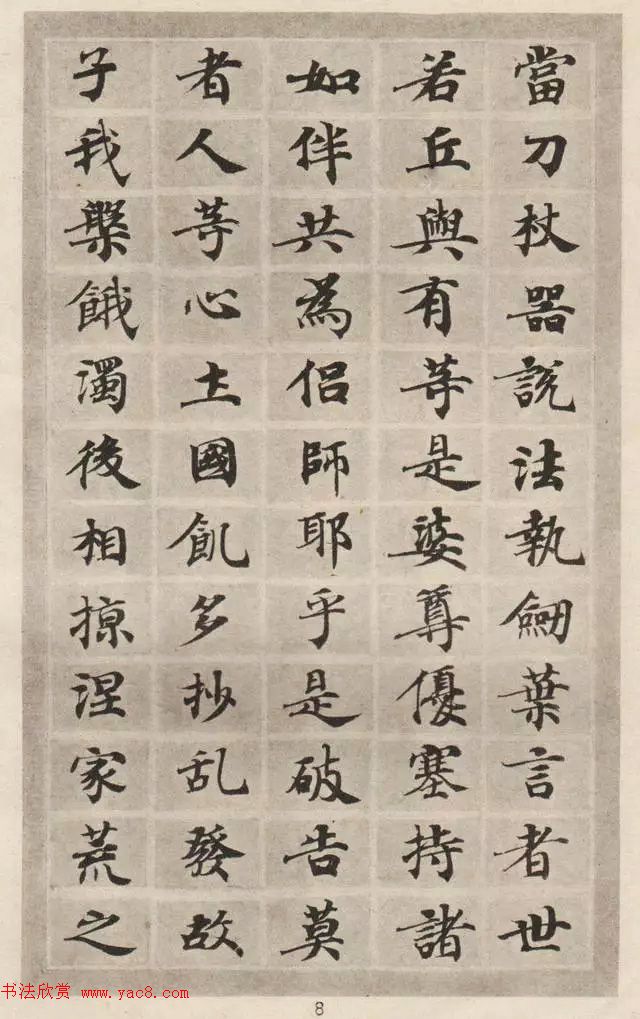 當刀杖器說法執劔葉言者世
若丘與有等是婆尊優塞持諸
如伴共為侶師耶乎是破告莫
者人等心土國飢多抄乱發故
子我槃餓濁後相掠涅家荒之
书法欣赏 www.yac8.com
8